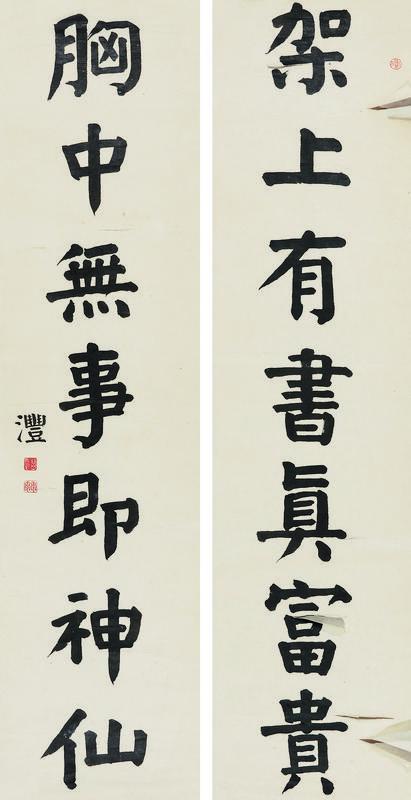 架上有書真富貴
胸中無事即神仙
灃